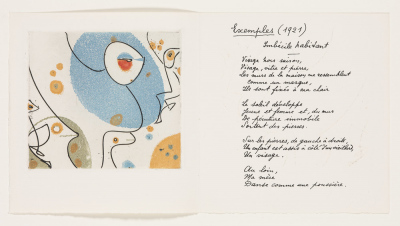 Exemples (1921)
Imbécile habitant
Visage hors saison,
Visage, vitre et pierre,
Les murs de la maison me ressemblent
comme un masque,
Ils sont fixés à ma chair
Le soleil développe
Jaune et femme et, du mur
De peinture immobile
Sortent des pierres.
Sur les pierres, de gauche à droite,
Un enfant est assis à côté d'un vieillard,
Un visage.
Au loin,
Ma mère
Danse comme une poussière.